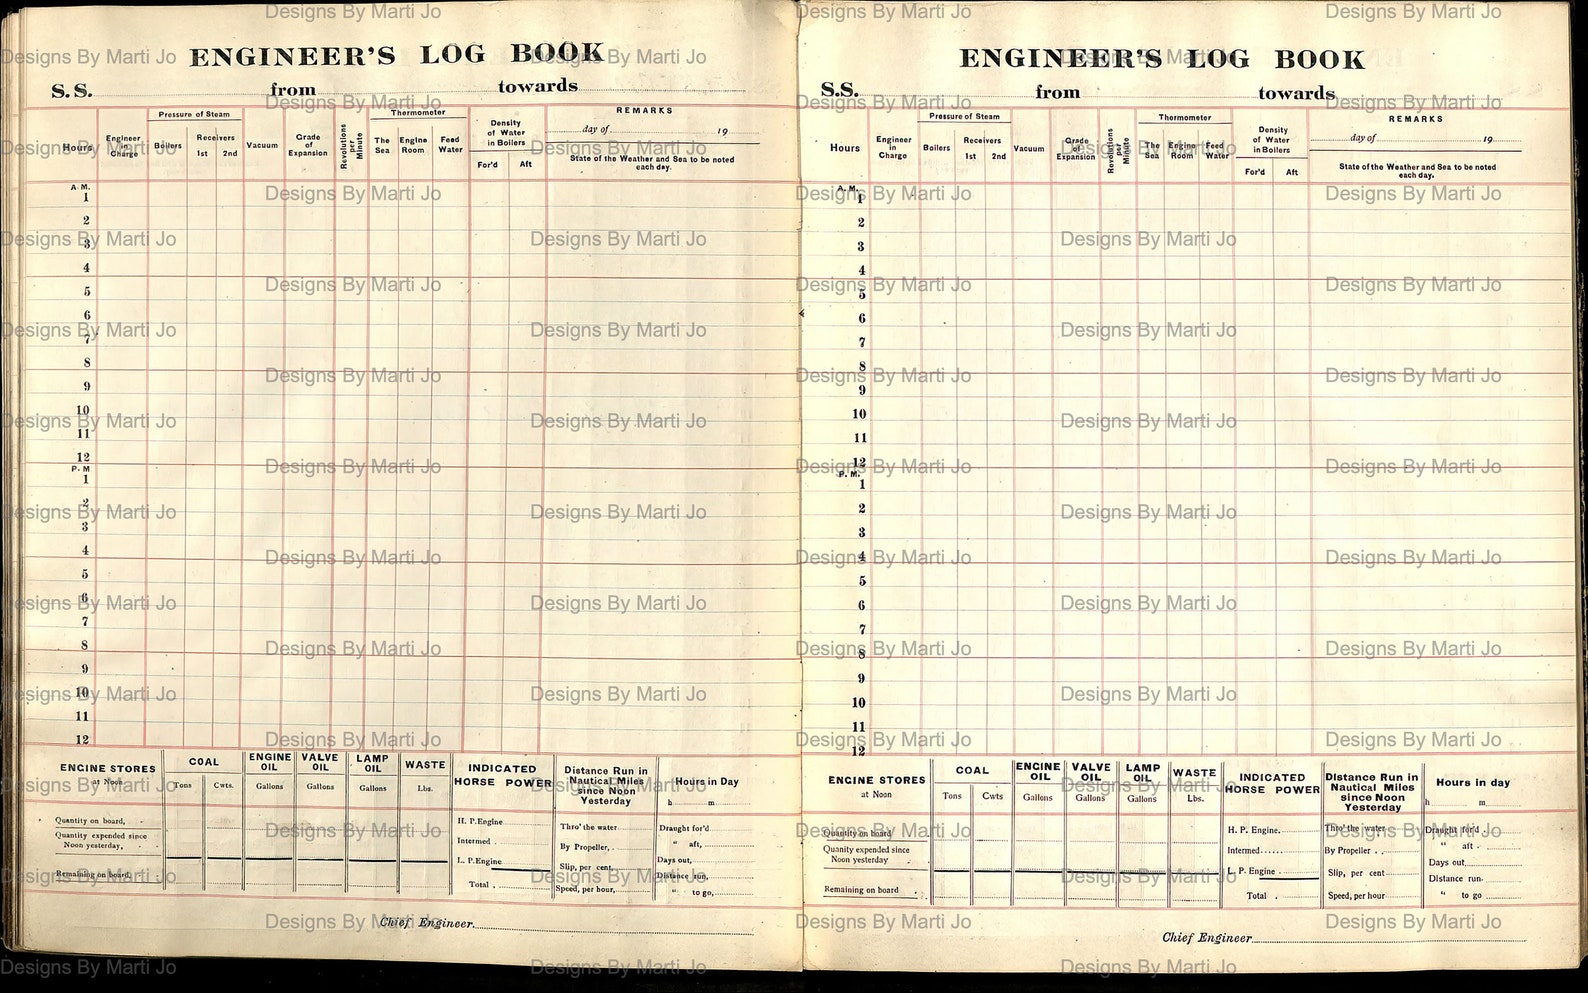 ENGINEER'S LOG BOOK
S.S. from towards
Hours
Engineer in Charge
Pressure of Steam
Boilers
Receivers
1st 2nd
Vacuum
Grade of Expansion
Revolutions per Minute
Thermometer
The Sea
Engine Room
Feed Water
Density of Water in Boilers
For'd Aft
REMARKS
day of 19
State of the Weather and Sea to be noted each day.
A. M.
1
2
3
4
5
6
7
8
9
10
11
12
P. M
1
2
3
4
5
6
7
8
9
10
11
12
ENGINE STORES
at Noon
COAL
Tons Cwts.
ENGINE OIL
Gallons
VALVE OIL
Gallons
LAMP OIL
Gallons
WASTE
Lbs.
INDICATED HORSE POWER
Distance Run in Nautical Miles since Noon Yesterday
Hours in Day
h m
Quantity on board,
Quantity expended since Noon yesterday,
Remaining on board,
H. P. Engine
Intermed .
L. P. Engine
Total .
Thro' the water
By Propeller, .
Slip, per cent,
Speed, per hour,
Draught for'd
" aft,
Days out,
Distance run,
" to go,
Chief Engineer
ENGINEER'S LOG BOOK
S.S. from towards
Hours
Engineer in Charge
Pressure of Steam
Boilers
Receivers
1st 2nd
Vacuum
Grade of Expansion
Revolutions per Minute
Thermometer
The Sea
Engine Room
Feed Water
Density of Water in Boilers
For'd Aft
REMARKS
day of 19
State of the Weather and Sea to be noted each day.
A. M.
1
2
3
4
5
6
7
8
9
10
11
12
P. M.
1
2
3
4
5
6
7
8
9
10
11
12
ENGINE STORES
at Noon
COAL
Tons Cwts
ENGINE OIL
Gallons
VALVE OIL
Gallons
LAMP OIL
Gallons
WASTE
Lbs.
INDICATED HORSE POWER
Distance Run in Nautical Miles since Noon Yesterday
Hours in day
h m
Quantity on board
Quanity expended since Noon yesterday
Remaining on board
H. P. Engine.
Intermed......
L. P. Engine
Total .
Thro' the water
By Propeller . .
Slip, per cent
Speed, per hour
Draught for'd
" aft
Days out,
Distance run
" to go
Chief Engineer
Designs By Marti Jo